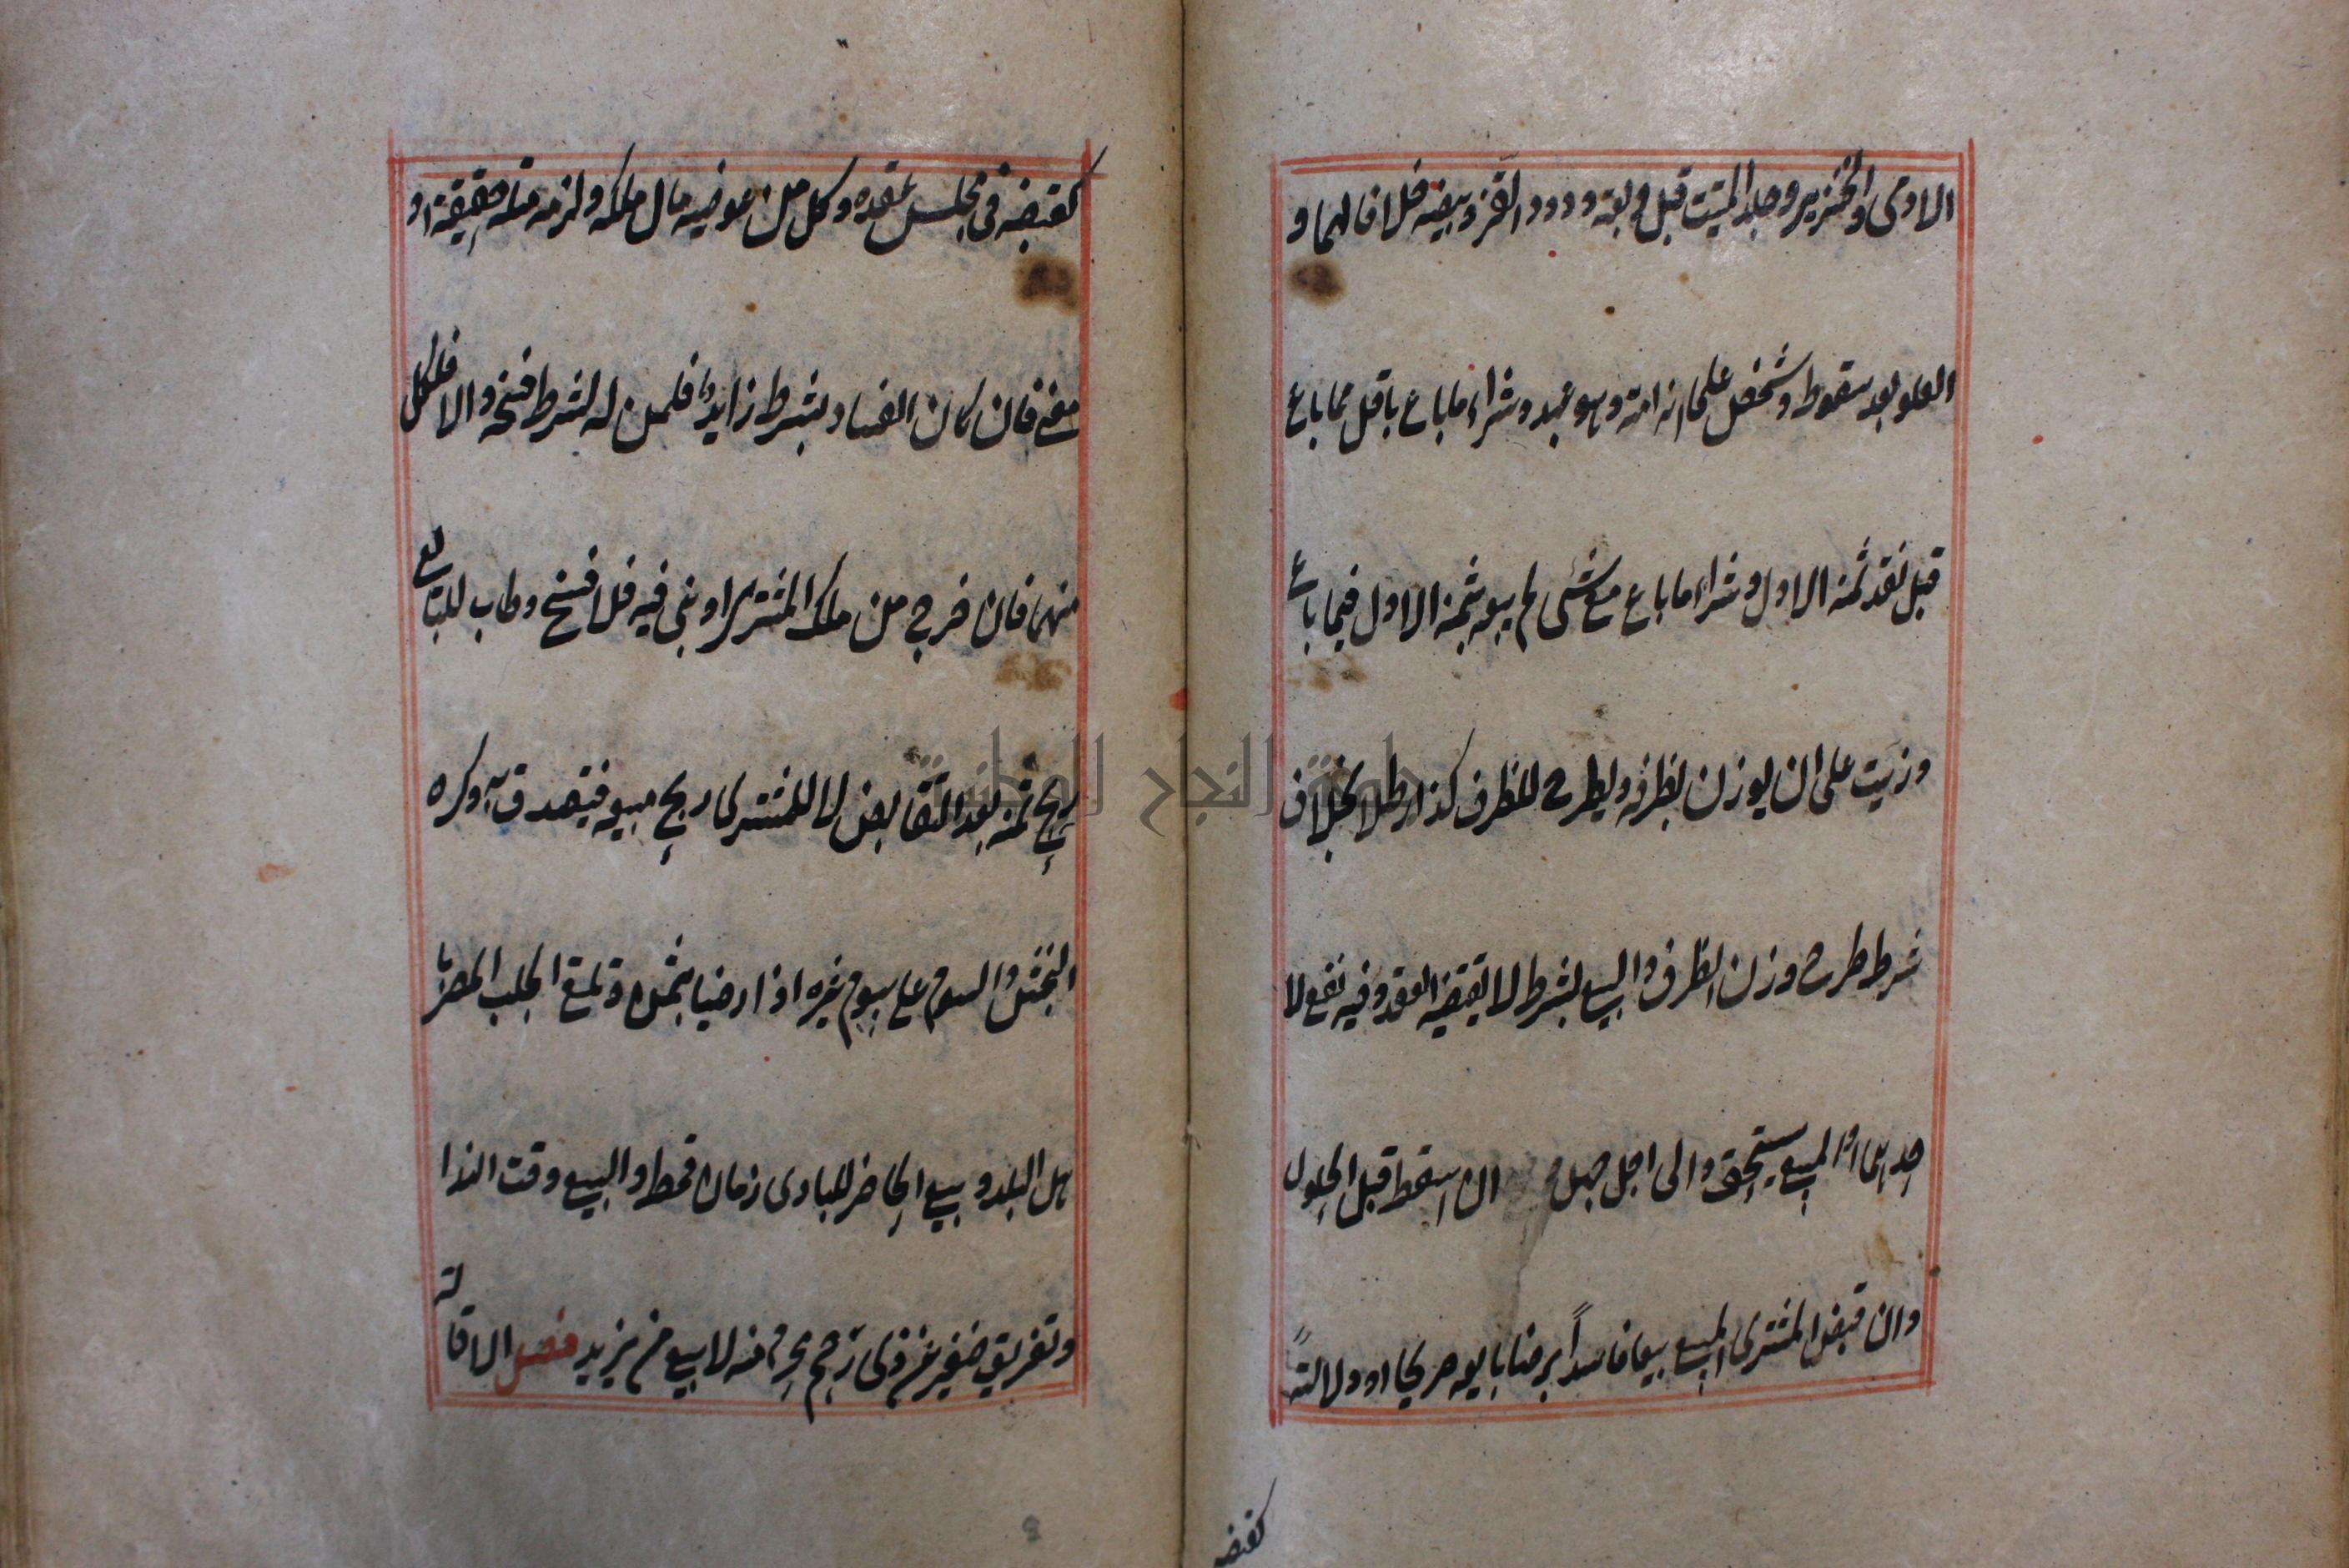 الادمى والخنزير وجلد الميتت قبل دبغه ودود القز وبيضه خلافا لهما و
العلو بعد سقوط وشخص على انه امة وهو عبد وشراء ما باع باقل مما باع
قبل نقد ثمنه الاول وشراء ما باع مع شئى لم يبعه بثمنه الاول فيما باع
وزيت على ان يوزن بظرفه ويطرح للظرف كذا رطلا بخلاف
شرط طرح وزن الظرف والبيع بشرط لا يقتضيه العقد وفيه نفع لا
حدهما او المبيع يستحق والى اجل جهل ان اسقط قبل الحلول
وان قبض المشترى المبيع بيعا فاسداً برضا بايعه صريحا او دلالةً
كقبضه
كقبضه فى مجلس عقده وكل من عوضيه مال ملكه ولزمه مثله حقيقة او
معنى فان كان الفساد بشرط زايد فلمن له الشرط فسخه والا فلكل
منهما فان خرج من ملك المشترى او بنى فيه فلا فسخ وطاب للبائع
ربح ثمنه بعد التقابض لا للمشترى ربح مبيعه فيتصدق به وكره
النجش والسوم على سوم غيره اذا رضيا بثمن وتلقى الجلب المضر با
هل البلد وبيع الحاضر للبادى زمان قحط والبيع وقت الندا
وتفريق صغير عن ذى رحم محرم منه لا بيع من يزيد فصل الاقالة
جامعة النجاح الوطنية